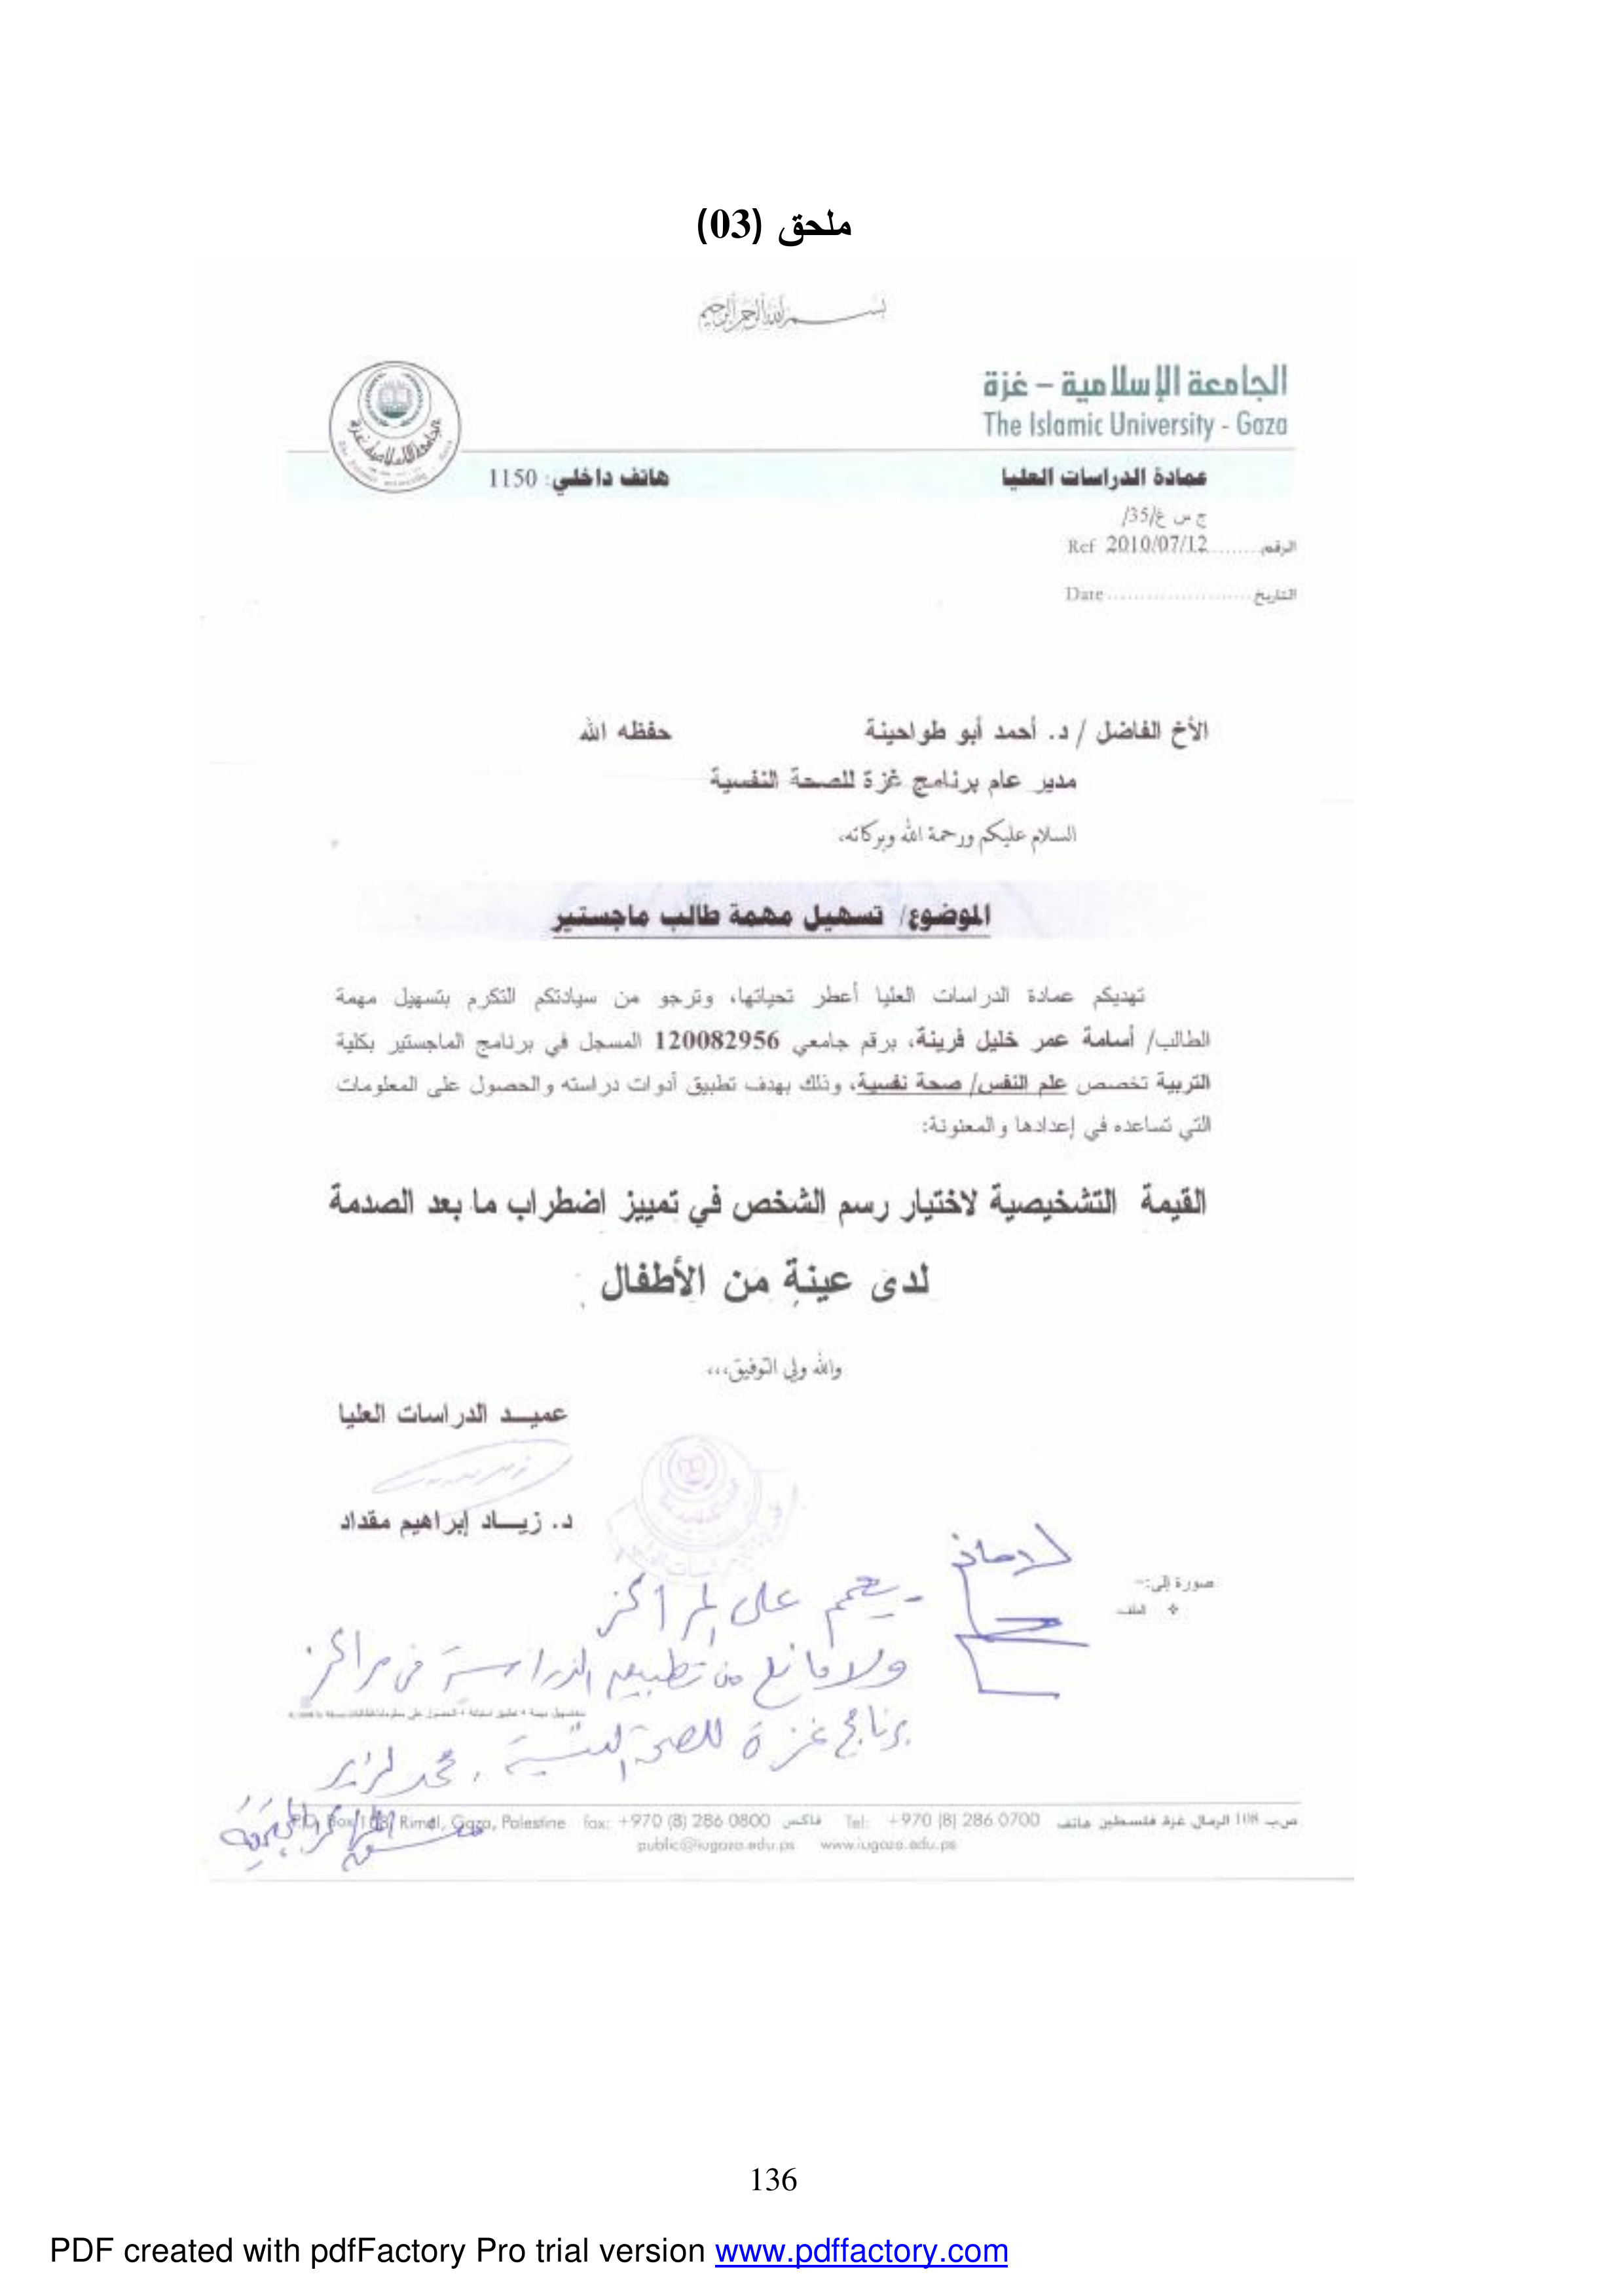 ملحق (03)
بسم الله الرحمن الرحيم
الجامعة الإسلامية – غزة
The Islamic University - Gaza
عمادة الدراسات العليا
هاتف داخلي: 1150
ج س غ/35/
الرقم........2010/07/12 Ref
التاريخ......................Date
الأخ الفاضل / د. أحمد أبو طواحينة حفظه الله
مدير عام برنامج غزة للصحة النفسية
السلام عليكم ورحمة الله وبركاته،
الموضوع/ تسهيل مهمة طالب ماجستير
تهديكم عمادة الدراسات العليا أعطر تحياتها، وترجو من سيادتكم التكرم بتسهيل مهمة
الطالب/ أسامة عمر خليل فرينة، برقم جامعي 120082956 المسجل في برنامج الماجستير بكلية
التربية تخصص علم النفس/ صحة نفسية، وذلك بهدف تطبيق أدوات دراسته والحصول على المعلومات
التي تساعده في إعدادها والمعنونة:
القيمة التشخيصية لاختيار رسم الشخص في تمييز اضطراب ما بعد الصدمة
لدى عينة من الأطفال
والله ولي التوفيق،،،
عميــد الدراسات العليا
د. زيـــاد إبراهيم مقداد
صورة إلى:-
❖ الملف
- يعمم على المراكز
ولا مانع من تطبيق الدراسة في مراكز
برنامج غزة للصحة النفسية
ص.ب 108 الرمال غزة فلسطين هاتف Tel: +970 (8) 286 0700 فاكس fax: +970 (8) 286 0800 P.O. Box 108, Rimal, Gaza, Palestine
public@iugaza.edu.ps www.iugaza.edu.ps
136
PDF created with pdfFactory Pro trial version www.pdffactory.com